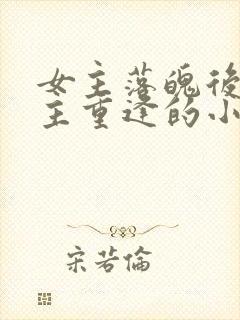 女主落魄後
主重逢的小
宋若倫